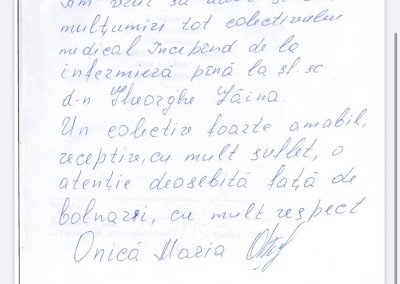 mulțumiri tot colectivului
medical încapînd de la
infermieră pînă la șf. sc.
d-n Gheorghe Țăina.
Un colectiv foarte amabil,
receptiv, cu mult suflet, o
atenție deosebită față de
bolnavi, cu mult respect
Onică Maria